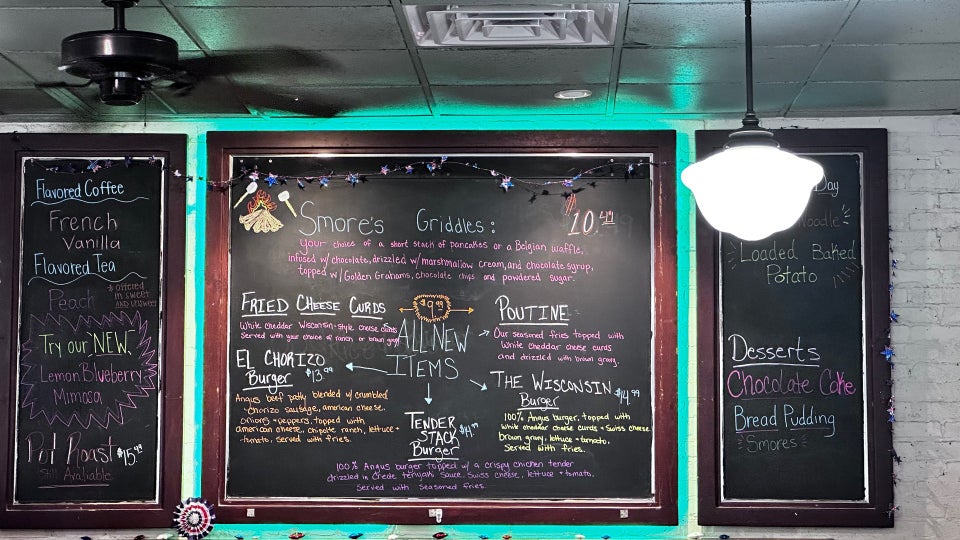 Flavored Coffee
French
Vanilla
Flavored Tea
Peach
* offered
in sweet
and unsweet
Try our NEW
Lemon Blueberry
Mimosa
Pot Roast $15.99
Still Avaliable
Smore's Griddles: 10.49
your choice of a short stack of pancakes or a Belgian waffle,
infused w/ chocolate, drizzled w/ marshmallow cream, and chocolate syrup,
topped w/ Golden Grahams, chocolate chips and powdered sugar.
FRIED CHEESE CURDS
White cheddar Wisconsin-style cheese curds
Served with your choice of ranch or brown gravy
$9.99
ALL NEW
ITEMS
POUTINE
Our seasoned fries topped with
white cheddar cheese curds
and drizzled with brown gravy.
EL CHORIZO
Burger $13.99
Angus beef patty blended w/ crumbled
chorizo sausage, american cheese,
onions + peppers, topped with
american cheese, chipotle ranch, lettuce +
tomato, served with fries.
THE WISCONSIN
Burger $14.99
100% Angus burger, topped with
white cheddar cheese curds + Swiss cheese
brown gravy, lettuce + tomato.
Served with fries.
TENDER
STACK
Burger
100% Angus burger topped w/ a crispy chicken tender
drizzled in Crede teriyaki sauce, Swiss cheese, lettuce + tomato.
Served with seasoned fries.
Day
Noodle
Loaded Baked
Potato
Desserts
Chocolate Cake
Bread Pudding
Smores